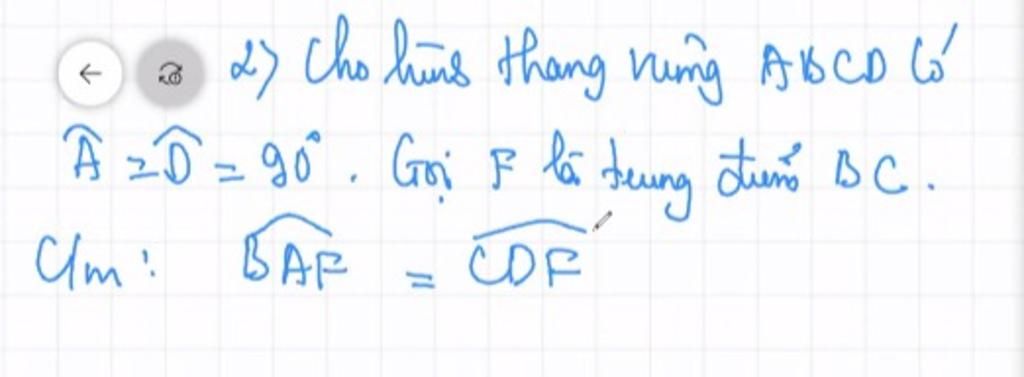 2) Cho hình thang vuông ABCD có
Â = D̂ = 90°. Gọi F là trung điểm BC.
C/m: BAF̂ = CDF̂